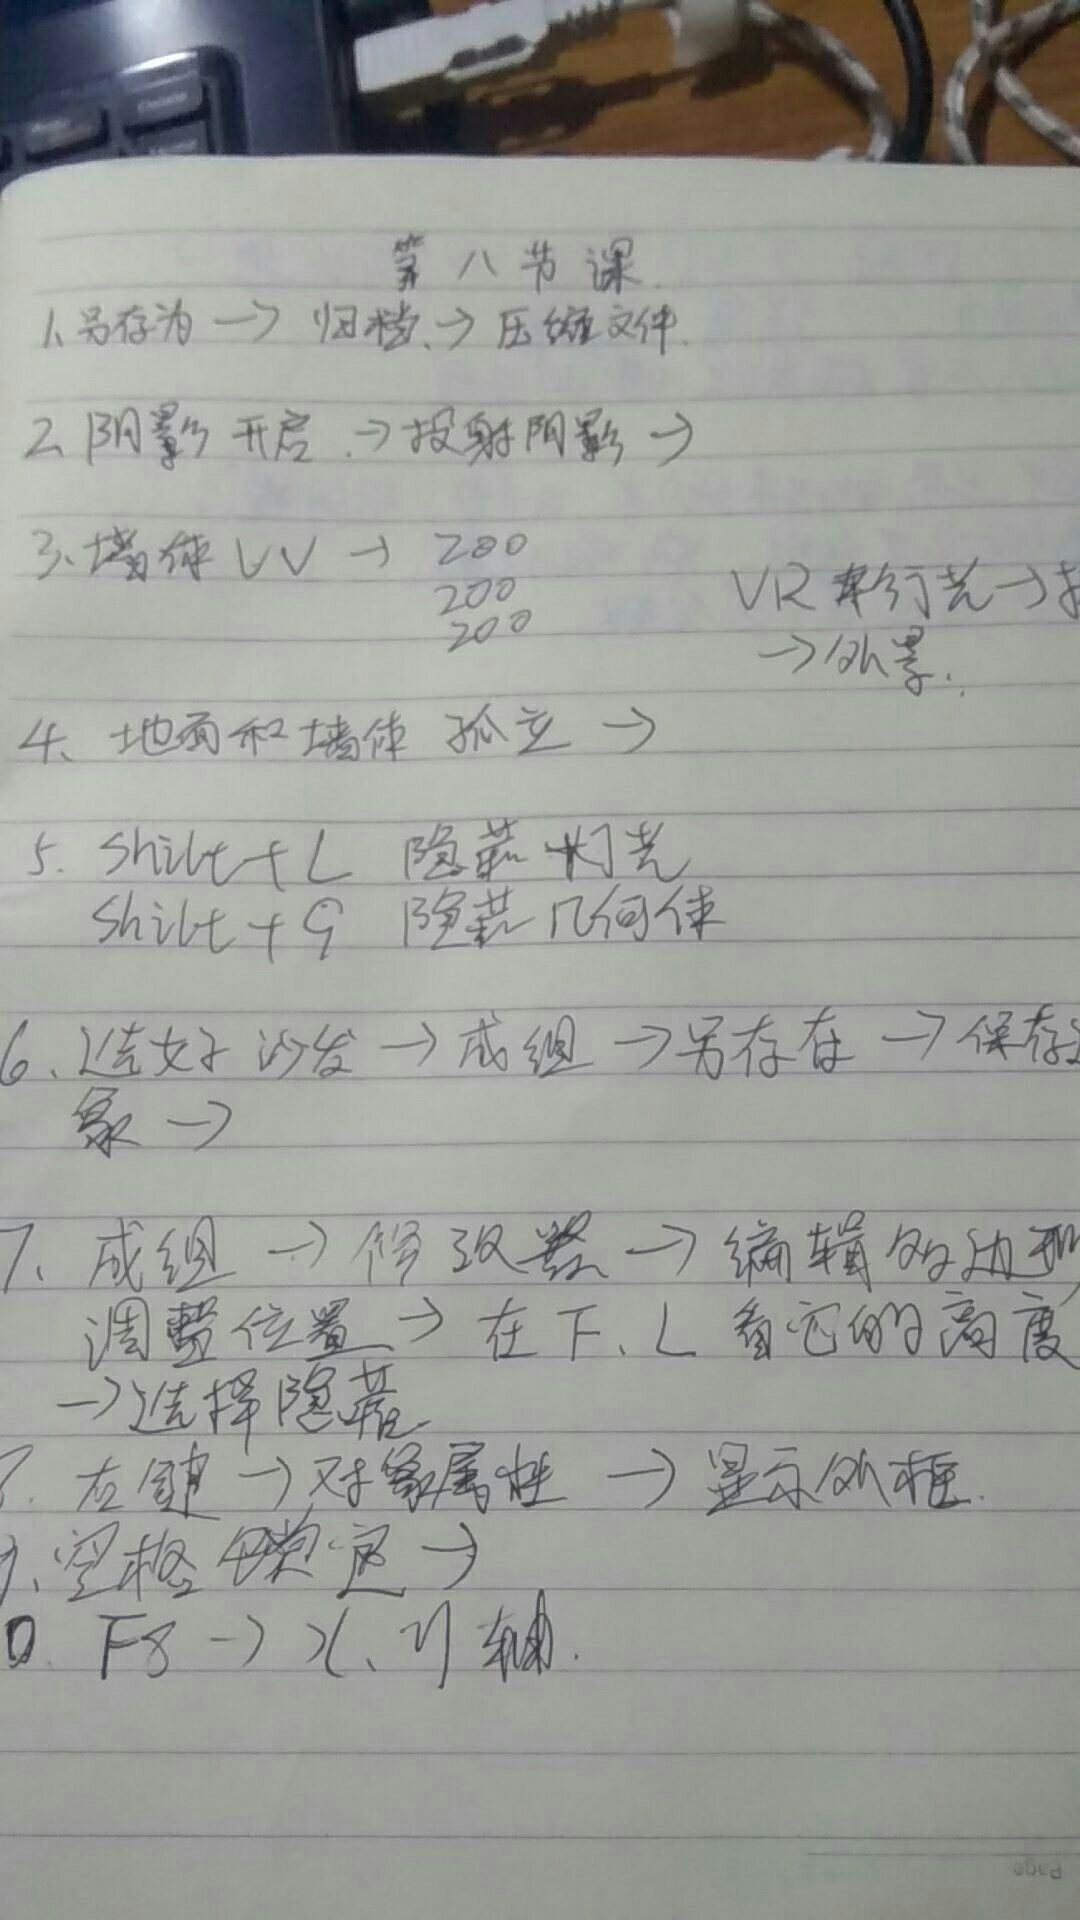 第八节课.
1、另存为 → 归档、→ 压缩文件.
2、阴影开启.→投射阴影→
3、墙体UV → 200
200
200
VR 穿行光→
→外景.
4、地面和墙体 孤立 →
5. Shift+L 隐藏灯光
Shift+G 隐藏几何体
6、选好沙发→成组→另存存→保存
象→
7、成组→修改器→编辑多边形
调整位置→在下、L看它的高度
→选择隐藏
右键→对象属性→显示外框.
空格 锁定→
0. F8→X、Y轴.
Page